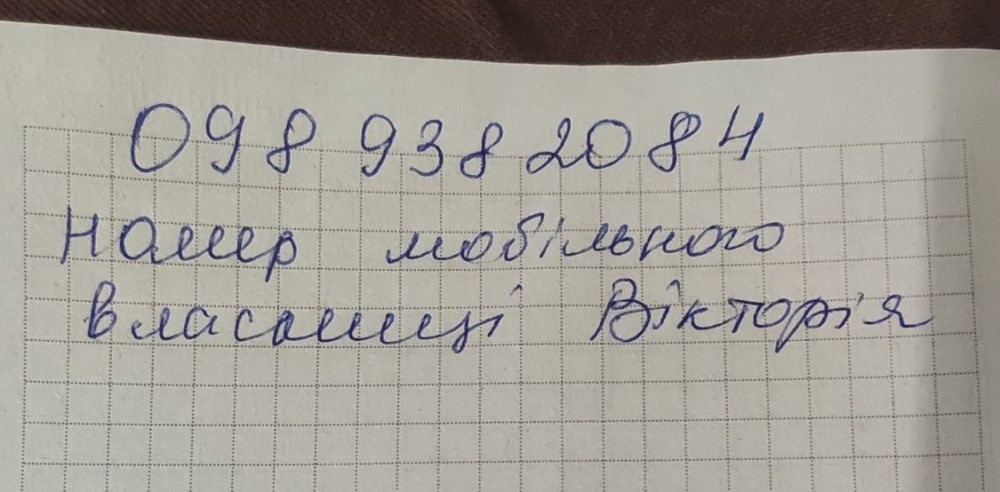 098 938 2084
Номер мобільного
власниці Вікторія